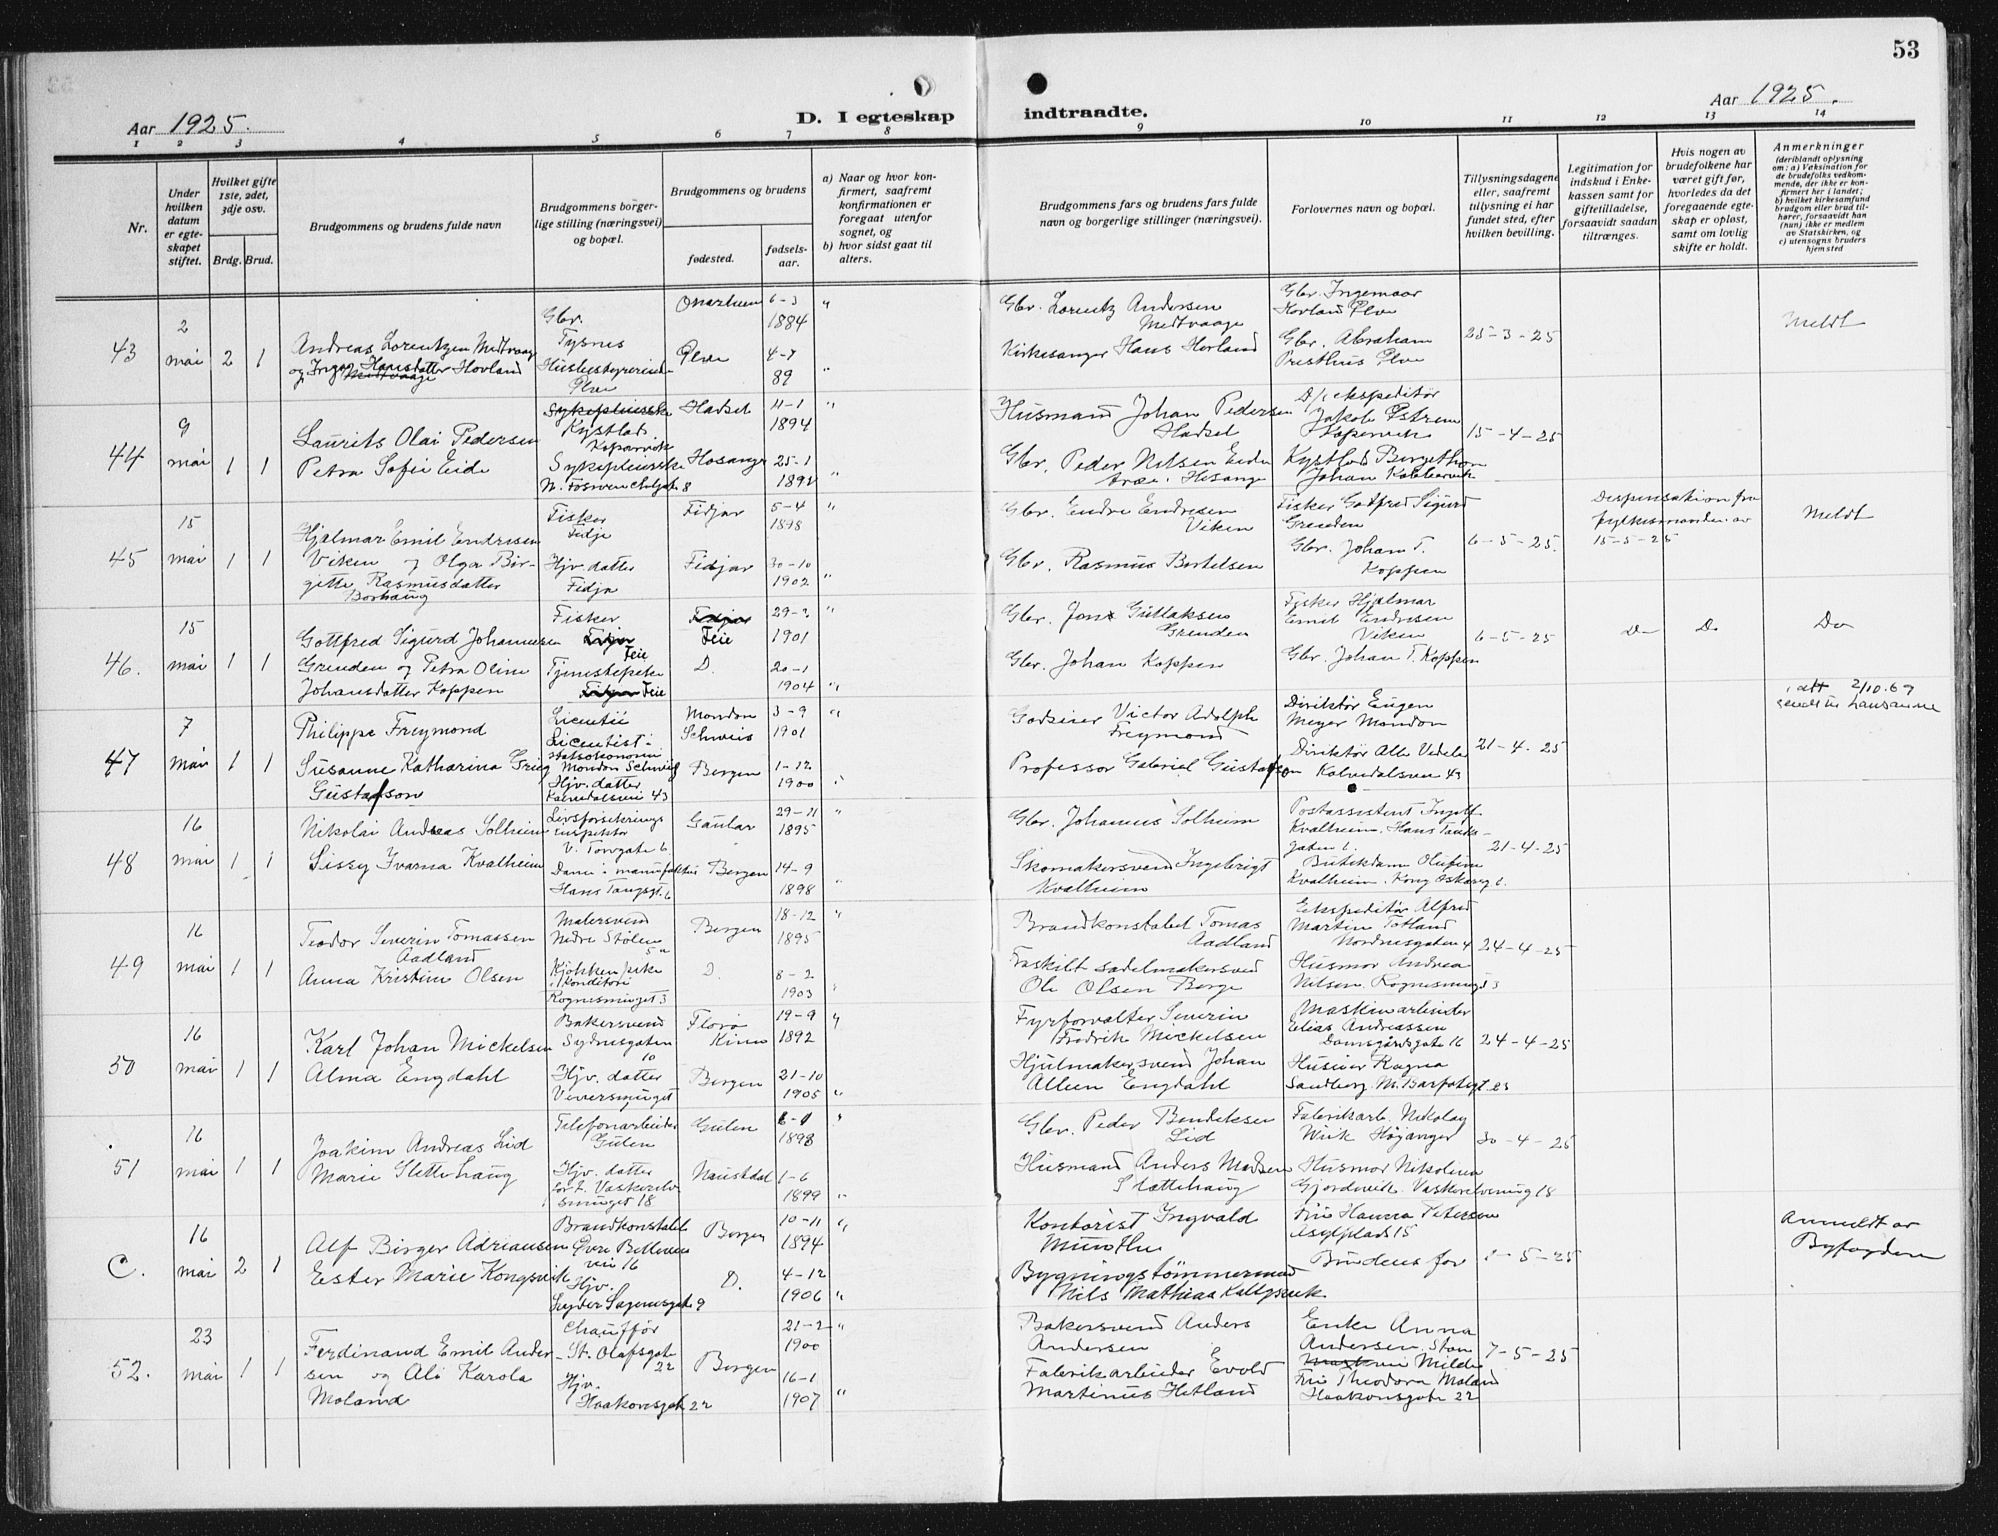 53
Aar 1925.
D. I egteskap indtraadte.
Aar 1925.
1 2 3 4 5 6 7 8 9 10 11 12 13 14
Nr.
Under hvilken datum er egteskapet stiftet.
Hvilket gifte 1ste, 2det, 3dje osv.
Brdg. Brud.
Brudgommens og brudens fulde navn
Brudgommens borgerlige stilling (næringsvei) og bopæl.
Brudgommens og brudens
fødested.
fødselsaar.
a) Naar og hvor konfirmert, saafremt konfirmationen er foregaat utenfor sognet, og
b) hvor sidst gaat til alters.
Brudgommens fars og brudens fars fulde navn og borgerlige stillinger (næringsvei).
Forlovernes navn og bopæl.
Tillysningsdagene eller, saafremt tillysning ei har fundet sted, efter hvilken bevilling.
Legitimation for indskud i Enkekassen samt for giftetilladelse, forsaavidt saadan tiltrænges.
Hvis nogen av brudefolkene har været gift før, hvorledes da det foregaaende egteskap er opløst, samt om lovlig skifte er holdt.
Anmerkninger
(deriblandt oplysning om: a) Vaksination for de brudefolks vedkommende, der ikke er konfirmert her i landet; b) hvilket kirkesamfund brudgom eller brud tilhører, forsaavidt han (hun) ikke er medlem av Statskirken, og c) utensogns bruders hjemsted
43
2 mai
2 1
Andreas Lorentzen Medtvaage
og Inger Hansdatter Hovland
Gbr.
Tysnes
Ølve
Ølve
6-3
1884
4-7
89
Gbr. Lorentz Andersen
Medtvaage
Kirkesanger Hans Hovland
Gbr. Ingemaar
Hovland Ølve
Gbr. Abraham
Presthus Ølve
25-3-25
Meldt
44
9 mai
1 1
Laurits Olai Pedersen
Petra Sofie Eide
Sykepleierske
Kystlods
Kopervik
Sykepleierske
Hadsel
Hosanger
11-1
1894
25-1
1892
Husmand Johan Pedersen
Hadsel
Gbr. Peder Nilsen Eide
Hosanger
D/s ekspeditør
Jakob Østrem
Kopervik
Kystlods Bergethon
Johan
15-4-25
45
15 mai
1 1
Hjalmar Emil Endresen
Viken og Olga Bir-
gitte Rasmusdatter
Borhaug
Fisker
Fidje
Hjv. datter
Fidja
Fidjar
Fidjar
5-4
1898
30-10
1902
Gbr. Endre Endresen
Viken
Gbr. Rasmus Bertelsen
Fisker Gotfred Sigurd
Grenden
Gbr. Johan T.
Koppen
6-5-25.
Dispensation fra
fylkesmanden av
15-5-25
Meldt
46.
15 mai
1 1
Gottfred Sigurd Johannesen
Grenden og Petra Oline
Johansdatter Koppen
Fisker
Feie
Tjenestepike
Feie
Fidjar
Feie
D.
29-2
1901
20-1
1904
Gbr. Jons Gullaksen
Grenden
Gbr. Johan Koppen
Fisker Hjalmar
Emil Endresen
Viken
Gbr. Johan T. Koppen
6-5-25
Do
Do
Do
47
7 mai
1 1
Philippe Freymond
Susanne Katharina Grieg
Gustafson
Licentié
Licentist i
statsøkonomi
Mondon Schweiz
Hjv. datter
Kalvedalsvei 43
Mondon
Schweis
Bergen
3-9
1901
1-12
1900
Godseier Victor Adolph
Freymond
Professor Gabriel Gustafson
Direktør Eugen
Meyer Mondon
Direktør Alle Vedeler
Kalvedalsvei 43
21-4-25
att 2/10.69
sendt til Lausanne
48
16 mai
1 1
Nikolai Andreas Solheim
Sissy Ivarna Kvalheim
Livsforsikrings
inspektør
V. Torvgate 6
Dame i manufaktur
Hans Tangsgt. 6
Gaular
Bergen
29-11
1895
14-9
1898
Gbr. Johannes Solheim
Skomakersvend Ingebrigt
Kvalheim
Postassistent Ingolf
Kvalheim. Hans Tanks-
gaten 6.
Butikdame Olufine
Kvalheim. Kong Oskarsg 6.
21-4-25
49
16 mai
1 1
Teodor Severin Tomassen
Aadland
Anna Kristine Olsen
Malersvend
Nedre Stølen
5a
Kjøkkenpike
i konditori
Rognesmuget 3
Bergen
D.
18-12
1895
8-2
1903
Brandkonstabel Tomas
Aadland
Fraskilt sadelmakersvend
Ole Olsen Berge
Ekspeditør Alfred
Martin Totland
Nordnesgaten 4
Husmor Andrea
Nilsen Rognesmug 3
24-4-25
50
16 mai
1 1
Karl Johan Mickelsen
Alma Engdahl
Bakersvend
Sydnesgaten
10
Hjv. datter
Veversmuget
Florø
Kinn
Bergen
19-9
1892
21-10
1905
Fyrforvalter Severin
Fredrik Mickelsen
Hjulmakersvend Johan
Albin Engdahl
Maskinarbeider
Elias Andreassen
Damsgårdsgate 16
Husmor Ragna
Sandberg, N. Barfotgt 23
24-4-25
51
16 mai
1 1
Joakim Andreas Lid
Marie Slettehaug
Telefonarbeider
Gulen
Hjv. datter
Vaskerelv-
smuget 18
Gulen
Naustdal
1898
1-6
1899
Gbr. Peder Bendiksen
Lid
Husmand Anders Madsen
Slættehaug
Fabrikarb. Nikolay
Wiik Høyanger
Husmor Nikolina
Gjordevik Vaskerelvsmug 18
30-4-25
C.
16 mai
2 1
Alf Birger Adriansen
Ester Marie Kongsvik
Brandkonstabel
Øvre Bleken
vei 16
Hjv.
Lyder Sagensgate 9
Bergen
D.
10-11
1894
4-12
1906
Kontorist Ingvald
Munthe
Bygningstømmermand
Nils Mathias Kongsvik
Fru Hanna Petersen
Asylplads 15
Brudens far
2-5-25
Anmeldt av
Byfogden
52.
23 mai
1 1
Ferdinand Emil Ander-
sen og Ali Karola
Moland
Chauffør
St. Olafsgate
22
Hjv.
Haakonsgate 22
Bergen
21-2
1900
16-1
1907
Bakersvend Anders
Andersen
Fabrikarbeider Evold
Martinus Hetland
Enke Anna
Andersen. Store
Milde
Fru Theodora Moland
Haakonsgate 22
7-5-25